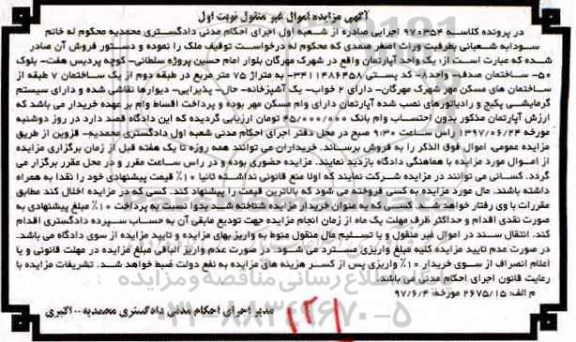 آگهی مزایده اموال غیر منقول نوبت اول
در پرونده کلاسه ۹۷۰۳۵۴ اجرایی صادره از شعبه اول اجرای احکام مدنی دادگستری محمدیه محکوم له خانم
سودابه شعبانی بطرفیت وراث اصغر صمدی که محکوم له درخواست توقیف ملک را نموده و دستور فروش آن صادر
شده که عبارت است از: یک واحد آپارتمان واقع در شهرک مهرگان بلوار امام حسین پروژه سلطانی- کوچه پردیس هفت- بلوک
۵۰- ساختمان صدف- واحد ۷- کد پستی ۳۴۱۱۴۸۶۴۵۸- به متراژ ۷۵ متر مربع در طبقه دوم از یک ساختمان ۷ طبقه از
ساختمان های مسکن مهر شهرک مهرگان- دارای ۲ خواب- یک آشپزخانه- حال- پذیرایی- دیوارها نقاشی شده و دارای سیستم
گرمایشی پکیج و رادیاتورهای نصب شده آپارتمان دارای وام مسکن مهر بوده و پرداخت اقساط وام بر عهده خریدار می باشد که
ارزش آپارتمان مذکور بدون احتساب وام بانک ۴۵/۰۰۰/۰۰۰ تومان ارزیابی گردیده که این دادگاه قصد دارد در روز دوشنبه
مورخه ۱۳۹۷/۰۶/۲۴ راس ساعت ۹:۳۰ صبح در محل دفتر اجرای احکام مدنی شعبه اول دادگستری محمدیه- قزوین از طریق
مزایده عمومی، اموال فوق الذکر را به فروش برساند. خریداران می توانند همه روزه تا یک هفته قبل از زمان برگزاری مزایده
از اموال مورد مزایده با هماهنگی دادگاه بازدید نمایند. مزایده حضوری بوده و در راس ساعت مقرر و در محل مقرر برگزار می
گردد. کسانی می توانند در مزایده شرکت نمایند که اولا منع قانونی نداشته ثانیا ۱۰٪ قیمت پیشنهادی خود را نقدا به همراه
داشته باشند. مال مورد مزایده به کسی فروخته می شود که بالاترین قیمت را پیشنهاد کند. کسی که در مزایده اخلال کند مطابق
مقررات با وی رفتار خواهد شد. کسی که به عنوان خریدار مزایده شناخته شد بدوا نسبت به پرداخت ۱۰٪ مبلغ پیشنهادی به
صورت نقدی اقدام و حداکثر ظرف مهلت یک ماه از زمان انجام مزایده جهت تودیع مابقی آن به حساب سپرده دادگستری اقدام
کند. انتقال سند در اموال غیر منقول و یا تسلیم مال منقول منوط به واریز بهای مزایده و تایید مزایده از سوی دادگاه می باشد.
در صورت عدم تایید مزایده کلیه مبلغ واریزی مسترد می شود. در صورت عدم واریز الباقی مبلغ مزایده در مهلت قانونی و یا
اعلام انصراف از سوی خریدار ۱۰٪ واریزی پس از کسر هزینه های مزایده به نفع دولت ضبط خواهد شد. تشریفات مزایده با
رعایت قانون اجرای احکام مدنی می باشد.
م الف: ۲۶۷۵/۱۵ مورخه: ۹۷/۶/۴
مدیر اجرای احکام مدنی دادگستری محمدیه - اکبری
۰۲۱-۸۸۳۴۹۶۷۰-۵